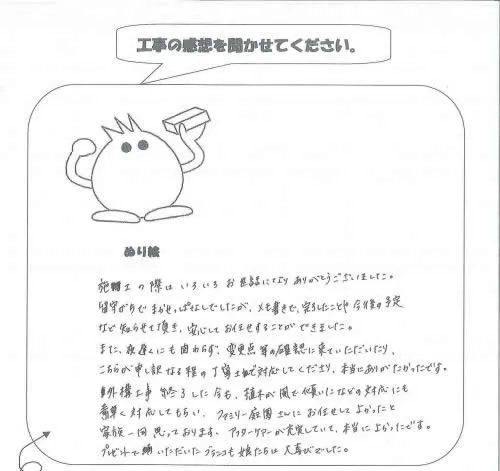 工事の感想を聞かせてください。
ぬり絵
施工の際はいろいろお世話になりありがとうございました。
留守がちでまかせっぱなしでしたが、メモ書きで、完了したことや今後の予定
など知らせて頂き、安心してお任せすることができました。
また、夜遅くにも関わらず、変更点等の確認に来ていただいたり、
こちらが申し訳なる程の丁寧な対応してくださり、本当にありがたかったです。
外構工事終了した今も、植木が風で傾いたなどの対応にも
素早く対応してもらい、ファミリー庭園さんにお任せしてよかったと
家族一同思っております。アフターケアが充実していて、本当によかったです。
プレゼントで頂いただいたブランコも娘たちは大喜びでした。